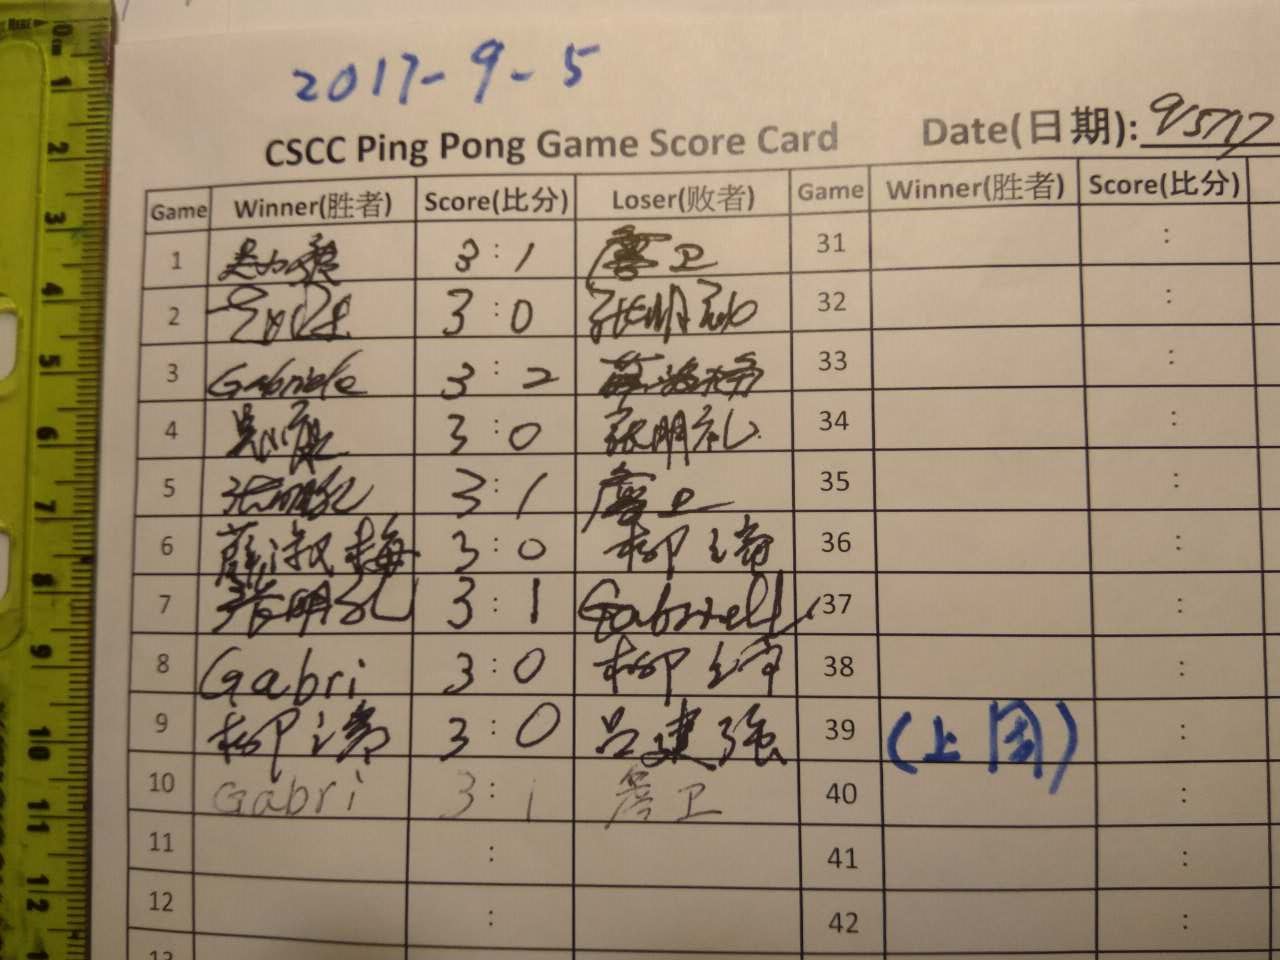 2017-9-5
CSCC Ping Pong Game Score Card Date(日期): 9/5/17
Game Winner(胜者) Score(比分) Loser(败者) Game Winner(胜者) Score(比分)
1 3 : 1 詹卫 31 :
2 3 : 0 张明 32 :
3 Gabriele 3 : 2 33 :
4 3 : 0 张明礼 34 :
5 3 : 1 詹卫 35 :
6 薛淑梅 3 : 0 柳缔 36 :
7 3 : 1 Gabriell 37 :
8 Gabri 3 : 0 柳缔 38 :
9 柳缔 3 : 0 吕建强 39 (上周) :
10 Gabri 3 : 1 詹卫 40 :
11 : 41 :
12 : 42 :
13